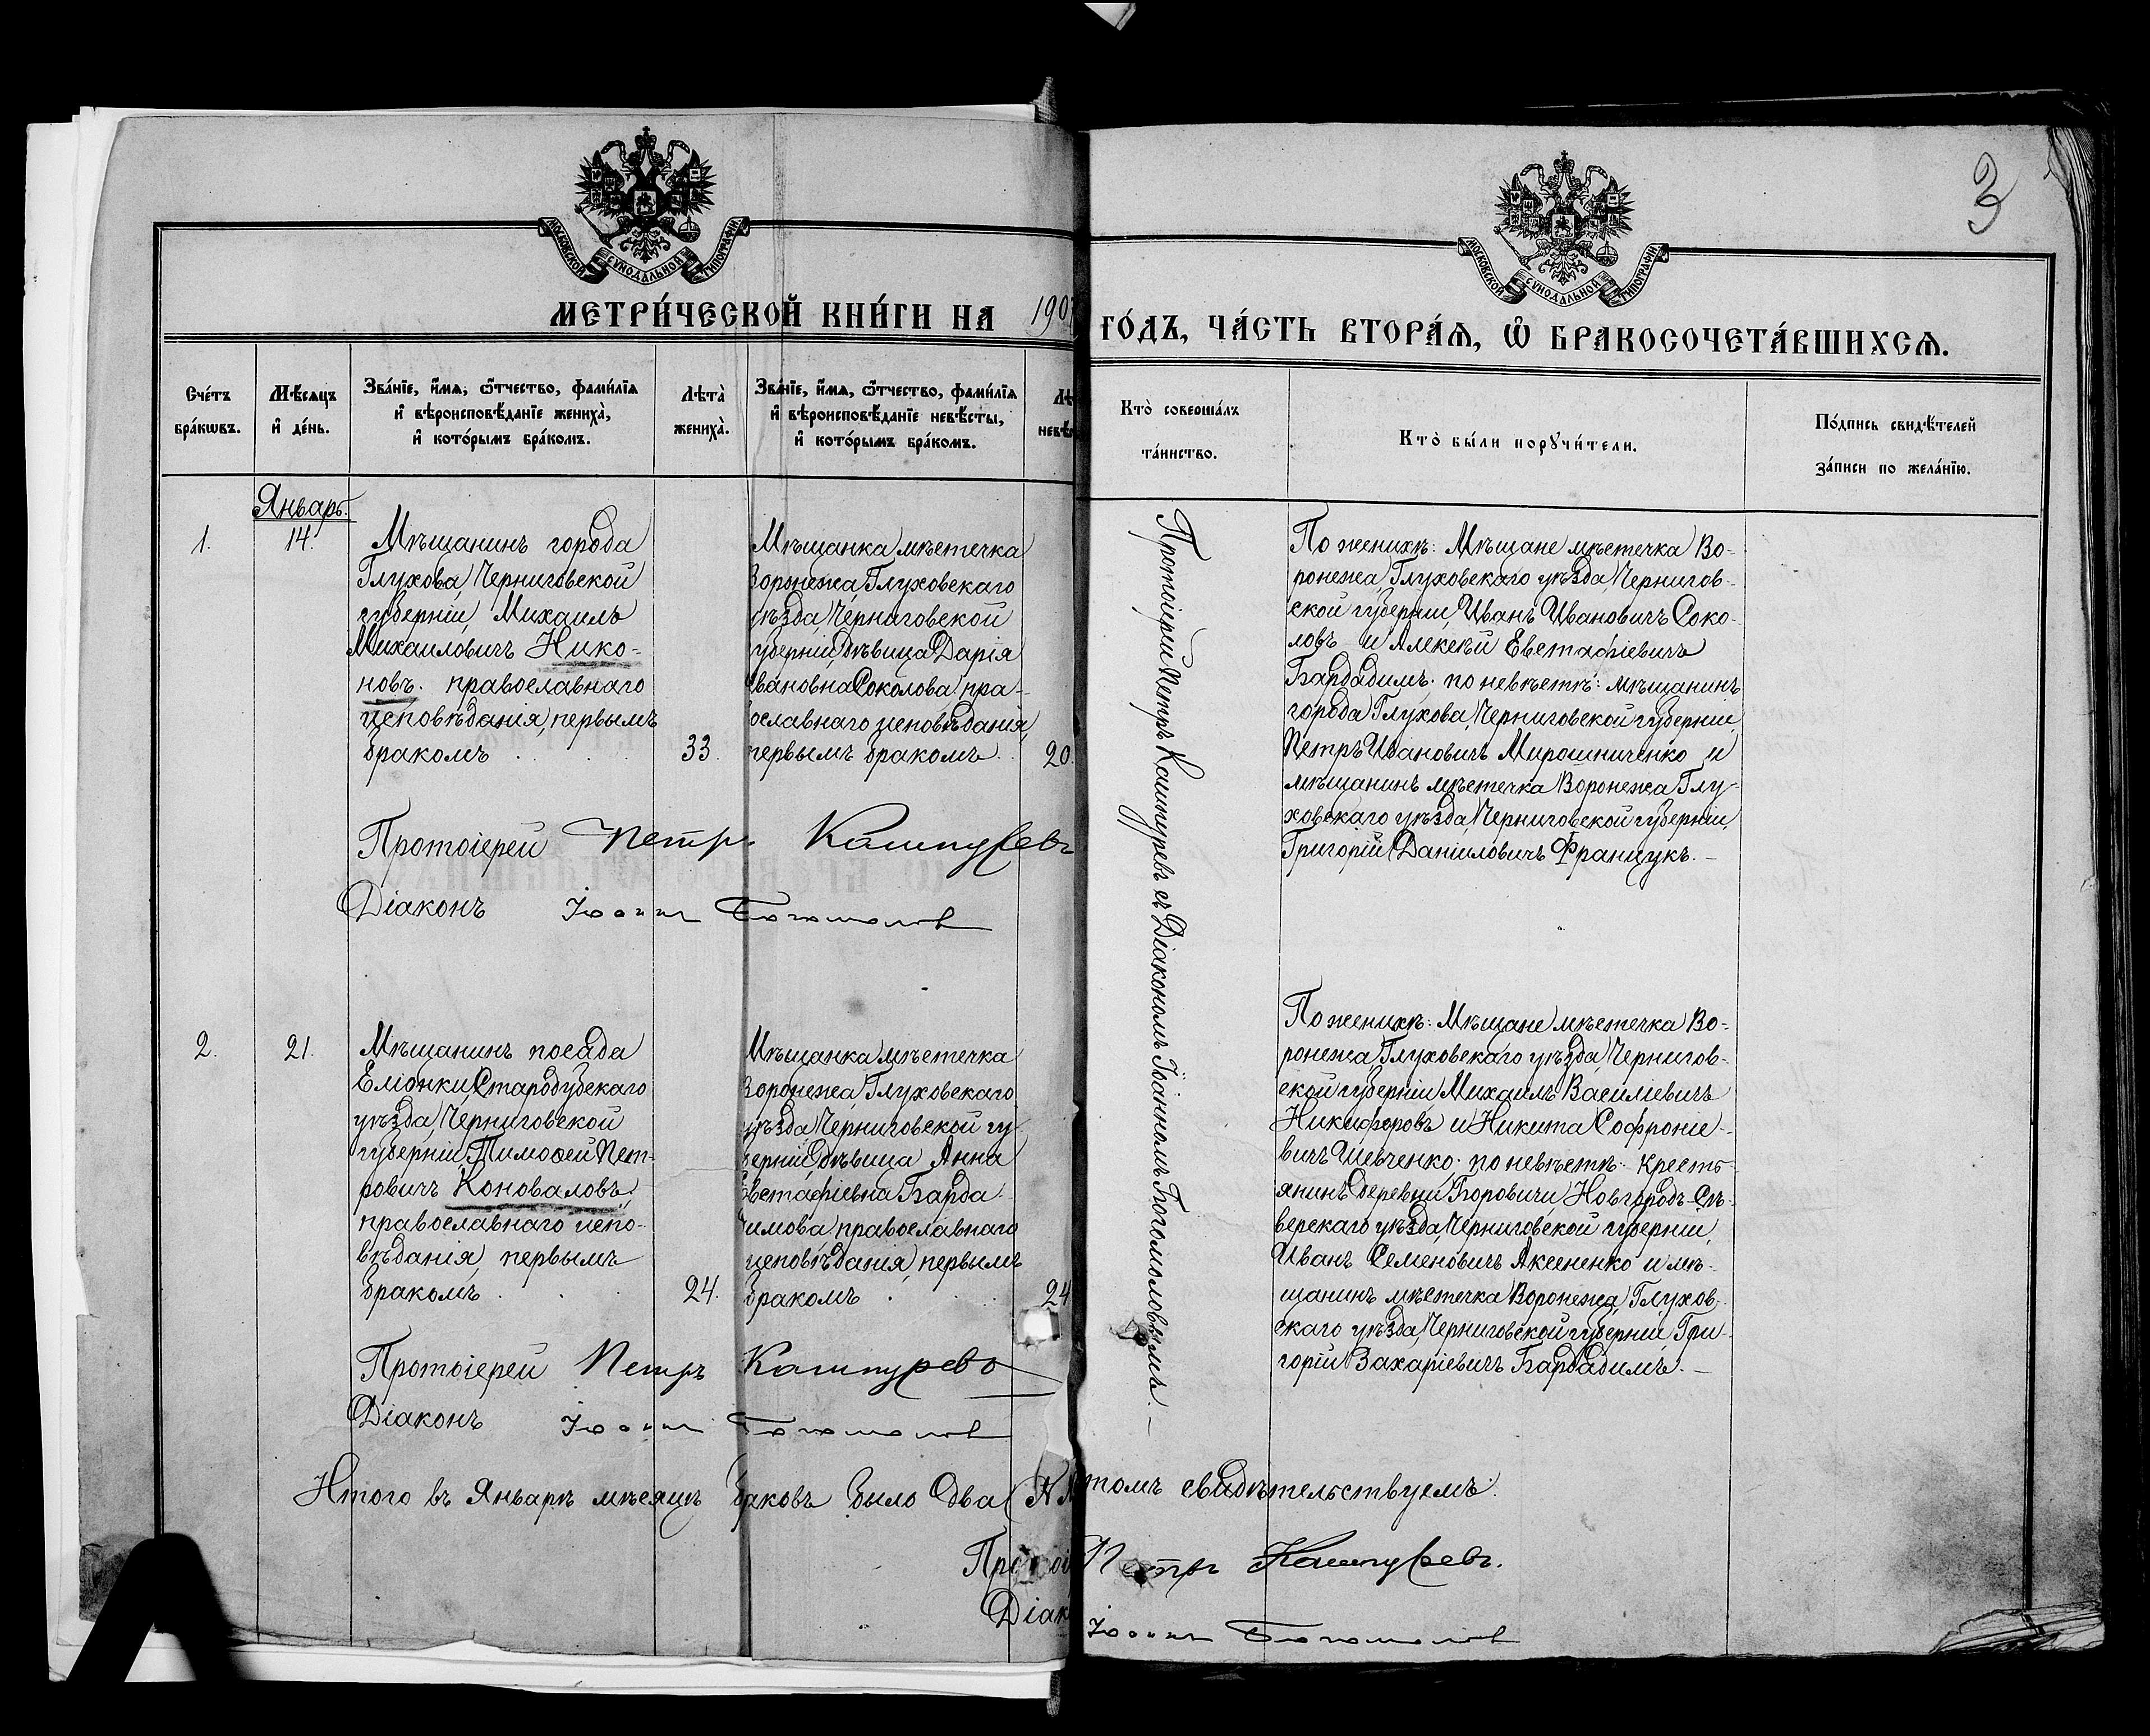 3
МОСКОВСКОЙ СѴНОДАЛЬНОЙ ТИПОГРАФІИ
МОСКОВСКОЙ СѴНОДАЛЬНОЙ ТИПОГРАФІИ
МЕТРИ́ЧЕСКОЙ КНИ́ГИ НА 190
ГО́ДЪ, ЧА́СТЬ ВТОРА́Ѧ, Ѽ БРАКОСОЧЕТА́ВШИХСѦ.
Сче́тъ
бра́кѡвъ.
Мѣ́сяцъ
и҆ де́нь.
Зва́нїе, и҆́мѧ, ѻ҆́тчество, фами́лїѧ
и҆ вѣроисповѣ́данїе жениха̀,
и҆ кото́рымъ бра́комъ.
Лѣта̀
жениха̀.
Зва́нїе, и҆́мѧ, ѻ҆́тчество, фами́лїѧ
и҆ вѣроисповѣ́данїе невѣ́сты,
и҆ кото́рымъ бра́комъ.
Лѣ
невѣ
Кто̀ соверша́лъ
та́инство.
Кто̀ бы́ли порꙋчи́тели.
По́дпись свидѣ́телей
за́писи по жела́нїю.
Январь.
1.
14.
Мѣщанинъ города
Глухова, Черниговской
губерніи, Михаилъ
Михаиловичъ Нико-
новъ. православнаго
исповѣданія, первымъ
бракомъ
33.
Мѣщанка мѣстечка
Воронежа, Глуховскаго
уѣзда, Черниговской
губерніи, дѣвица Дарія
Ивановна Соколова, пра-
вославнаго исповѣданія,
первымъ бракомъ.
20.
Протоіерей Петръ Кашпуревъ съ Діакономъ Іоанномъ Богомоловымъ. —
По женихѣ: Мѣщане мѣстечка Во-
ронежа, Глуховскаго уѣзда, Чернигов-
ской губерніи, Иванъ Ивановичъ Соко-
ловъ и Алексѣй Евстафіевичъ
Бардадимъ. по невѣстѣ: мѣщанинъ
города Глухова, Черниговской губерніи,
Петръ Ивановичъ Мирошниченко и
мѣщанинъ мѣстечка Воронежа Глу-
ховскаго уѣзда, Черниговской губерніи,
Григорій Даніиловичъ Францукъ. —
Протоіерей Петръ Кашпуревъ
Діаконъ Іоаннъ Богомолов
2.
21.
Мѣщанинъ посада
Еліонки, Стародубскаго
уѣзда, Черниговской
губерніи, Тимоѳей Пет-
ровичъ Коноваловъ,
православнаго испо-
вѣданія, первымъ
бракомъ
24.
Мѣщанка мѣстечка
Воронежа, Глуховскаго
уѣзда Черниговской гу-
берніи, дѣвица Анна
Евстафіевна Барда-
димова, православнаго
исповѣданія, первымъ
бракомъ
24
По женихѣ: Мѣщане мѣстечка Во-
ронежа, Глуховскаго уѣзда, Чернигов-
ской губерніи Михаилъ Василіевичъ
Никифоровъ и Никита Софроніе-
вичъ Шевченко. по невѣстѣ: кресть-
янинъ деревни Боровичи, Новгородъ-Сѣ-
верскаго уѣзда, Черниговской губерніи,
Иванъ Семеновичъ Аксененко и мѣ-
щанинъ мѣстечка Воронежа, Глухов-
скаго уѣзда, Черниговской губерніи, Гри-
горій Захаріевичъ Бардадимъ. —
Протоіерей Петръ Кашпуревъ
Діаконъ Іоаннъ Богомолов
Итого въ Январѣ мѣсяцѣ браковъ было два
томъ свидѣтельствуемъ.
Петръ Кашпуревъ.
Діак Іоаннъ Богомолов